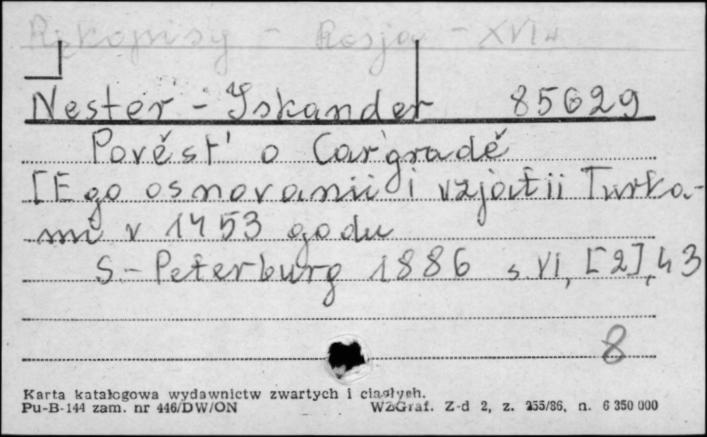 Rękopisy - Rosja - XVI w
Nester-Iskander 85629
Pověst' o Car'gradě
[Ego osnovanii i vzjatii Turka-
mi v 1453 godu
S.-Peterburg 1886 s. VI, [2], 43
8
Karta katalogowa wydawnictw zwartych i ciągłych.
Pu-B-144 zam. nr 446/DW/ON WZGraf. Z-d 2, z. 255/86, n. 6 350 000